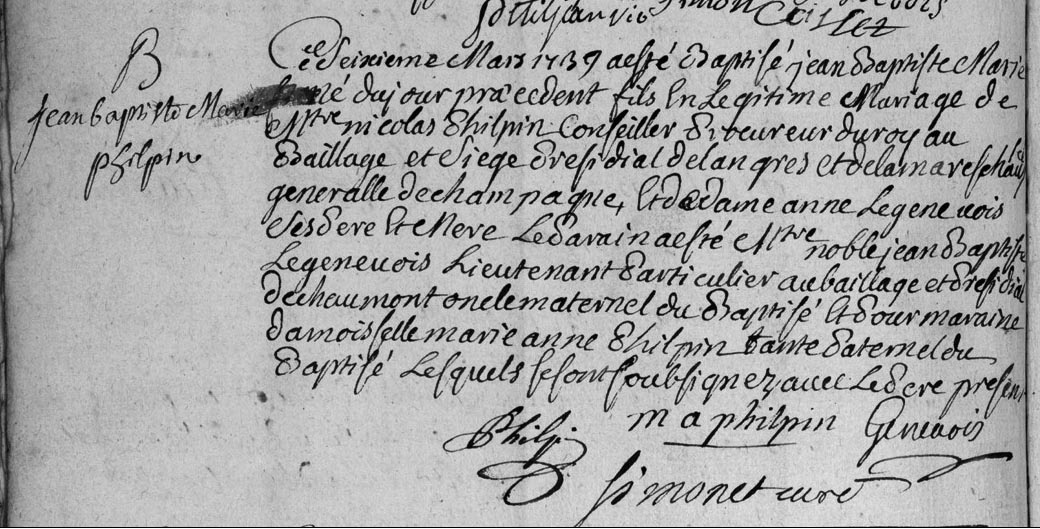 B
jean baptiste Marie
philpin
Ce Seizieme Mars 1739 a esté Baptisé jean Baptiste Marie
né du jour præcedent fils En Legitime Mariage de
Mtre nicolas Philpin Conseiller Procureur du roy au
Baillage et Siege Presidial de langres et de la mareschausé
generalle de champagne, Et de dame anne Legenevois
Ses Pere Et Mere Le Parain a esté Mtre noble jean Baptiste
Legenevois Lieutenant Particulier au baillage et Presidial
de chaumont oncle maternel du Baptisé Et Pour maraine
damoiselle marie anne Philpin tante Paternel du
Baptisé Lesquels se sont soubsignez avec Le Pere present
Philpin
m a philpin
Genevois
Simonet curé